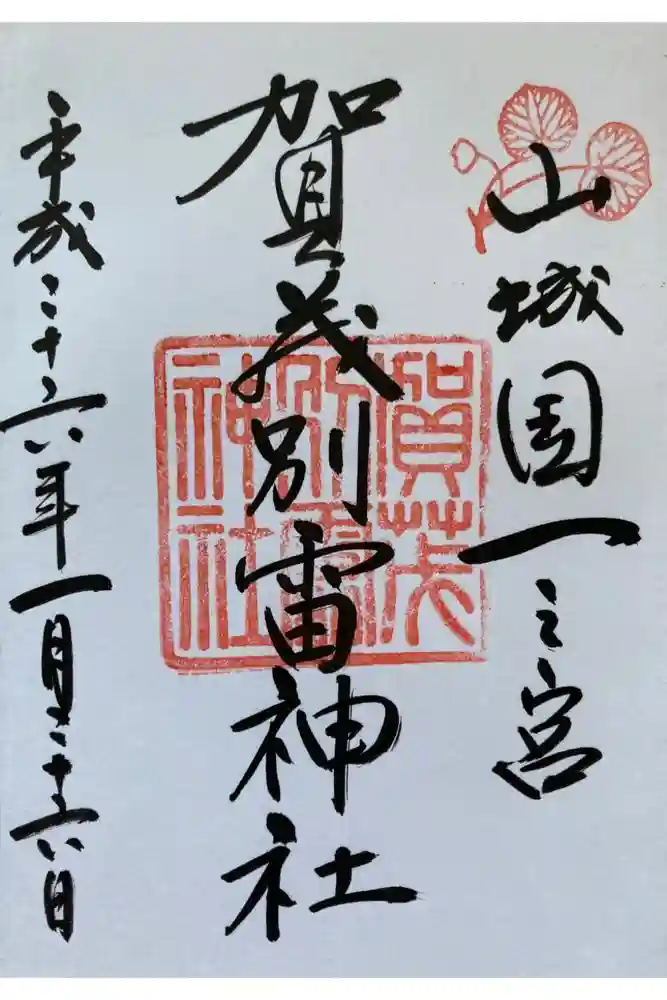 山城国一之宮
賀茂別雷神社
賀茂別雷神社
平成二十六年一月二十六日